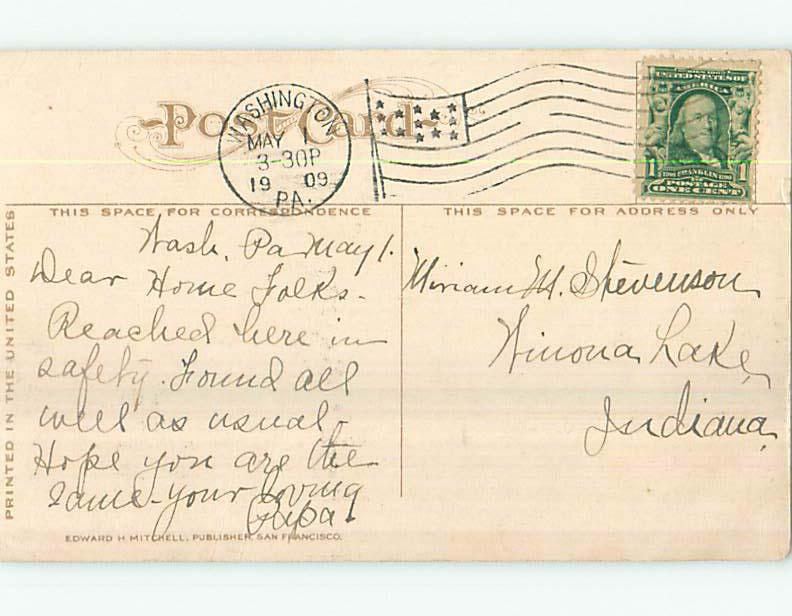 Post Card
WASHINGTON
MAY 1
3-30P
19 09
PA.
UNITED STATES OF
AMERICA
1 FRANKLIN 1
POSTAGE
ONE CENT
THIS SPACE FOR CORRESPONDENCE
THIS SPACE FOR ADDRESS ONLY
PRINTED IN THE UNITED STATES
Wash. Pa. May 1.
Dear Home Folks.
Reached here in
safety. Found all
well as usual.
Hope you are the
same - your loving
Papa.
Miriam M. Stevenson
Winona Lake,
Indiana.
EDWARD H MITCHELL, PUBLISHER, SAN FRANCISCO.